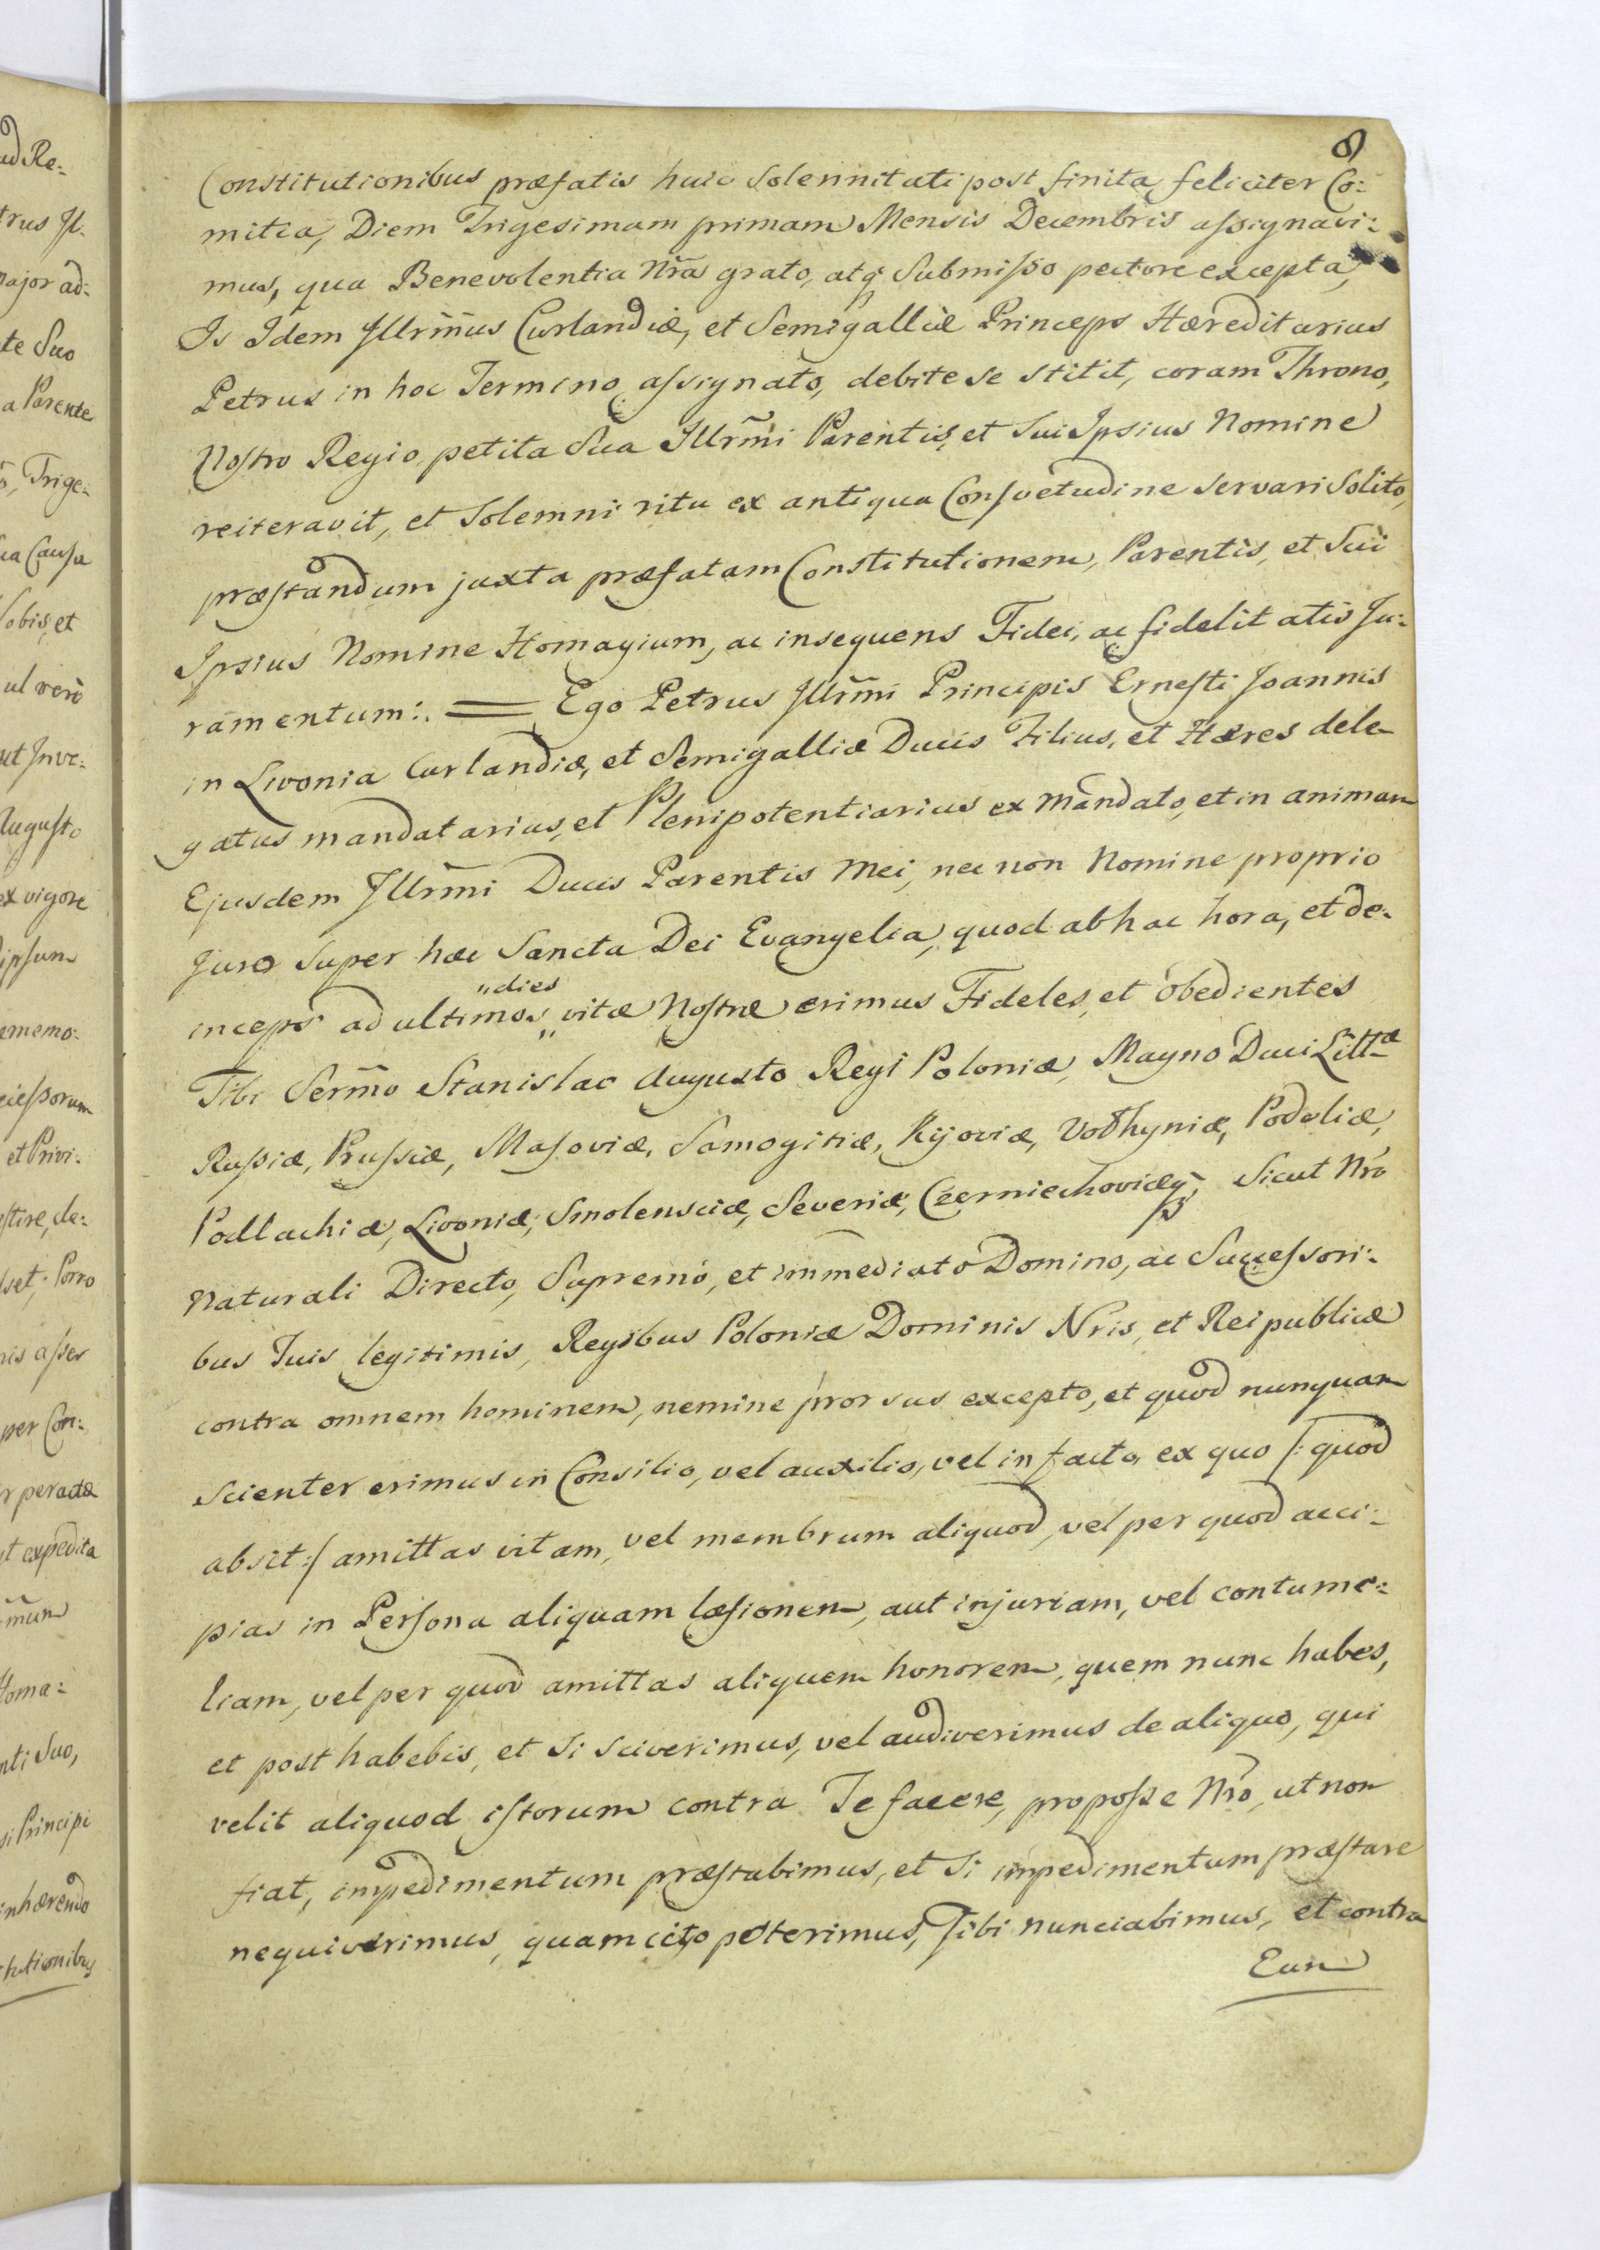 8
Constitutionibus præfatis huic Solennitati post finita feliciter Co:
mitia, Diem Trigesimam primam Mensis Decembris assignavi:
mus, qua Benevolentia Nr̃a grato, atq; Submisso pectore excepta,
Is Idem Illrm̃us Curlandiæ, et Semigalliæ Princeps Hæreditarius
Petrus in hoc Termino assignato, debite se stitit, coram Throno,
Nostro Regio petita Sua Illrm̃i Parentis, et Sui Ipsius Nomine
reiteravit, et Solemni ritu ex antiqua Consvetudine servari Solito,
præstandum juxta præfatam Constitutionem, Parentis, et Sui
Ipsius Nomine Homagium, ac insequens Fidei, ac fidelitatis Ju:
ramentum:. = Ego Petrus Illrm̃i Principis Ernesti Joannis
in Livonia Curlandiæ, et Semigalliæ Ducis Filius, et Hæres dele
gatus mandatarius, et Plenipotentiarius ex Mandato, et in animam
Ejusdem Illrm̃i Ducis Parentis Mei, nec non Nomine proprio
Juro Super hæc Sancta Dei Evangelia, quod ab hac hora, et de-
inceps ad ultimos „dies„ vitæ Nostræ erimus Fideles, et obedientes
Tibi Serm̃o Stanislao Augusto Regi Poloniæ, Magno Duci Littæ
Russiæ, Prussiæ, Masoviæ, Samogitiæ, Kijoviæ, Volhyniæ, Podoliæ,
Podlachiæ, Livoniæ, Smolensciæ, Severiæ, Czerniechoviæq; Sicut Nr̃o
Naturali Directo, Supremo, et immediato Domino, ac Successori:
bus Tuis legitimis, Regibus Poloniæ Dominis Nris, et Reipublicæ
contra omnem hominem, nemine prorsus excepto, et quod nunquam
scienter erimus in Consilio, vel auxilio, vel in facto, ex quo /: quod
absit :/ amittas vitam, vel membrum aliquod, vel per quod acci:
pias in Persona aliquam læsionem, aut injuriam, vel contume:
liam, vel per quod amittas aliquem honorem, quem nunc habes,
et post habebis, et Si Sciverimus, vel audiverimus de aliquo, qui
velit aliquod istorum contra Te facere, pro posse Nr̃o, ut non
fiat, impedimentum præstabimus, et Si impedimentum præstare
nequiverimus, quam cito poterimus, Tibi nunciabimus, et contra
Eum